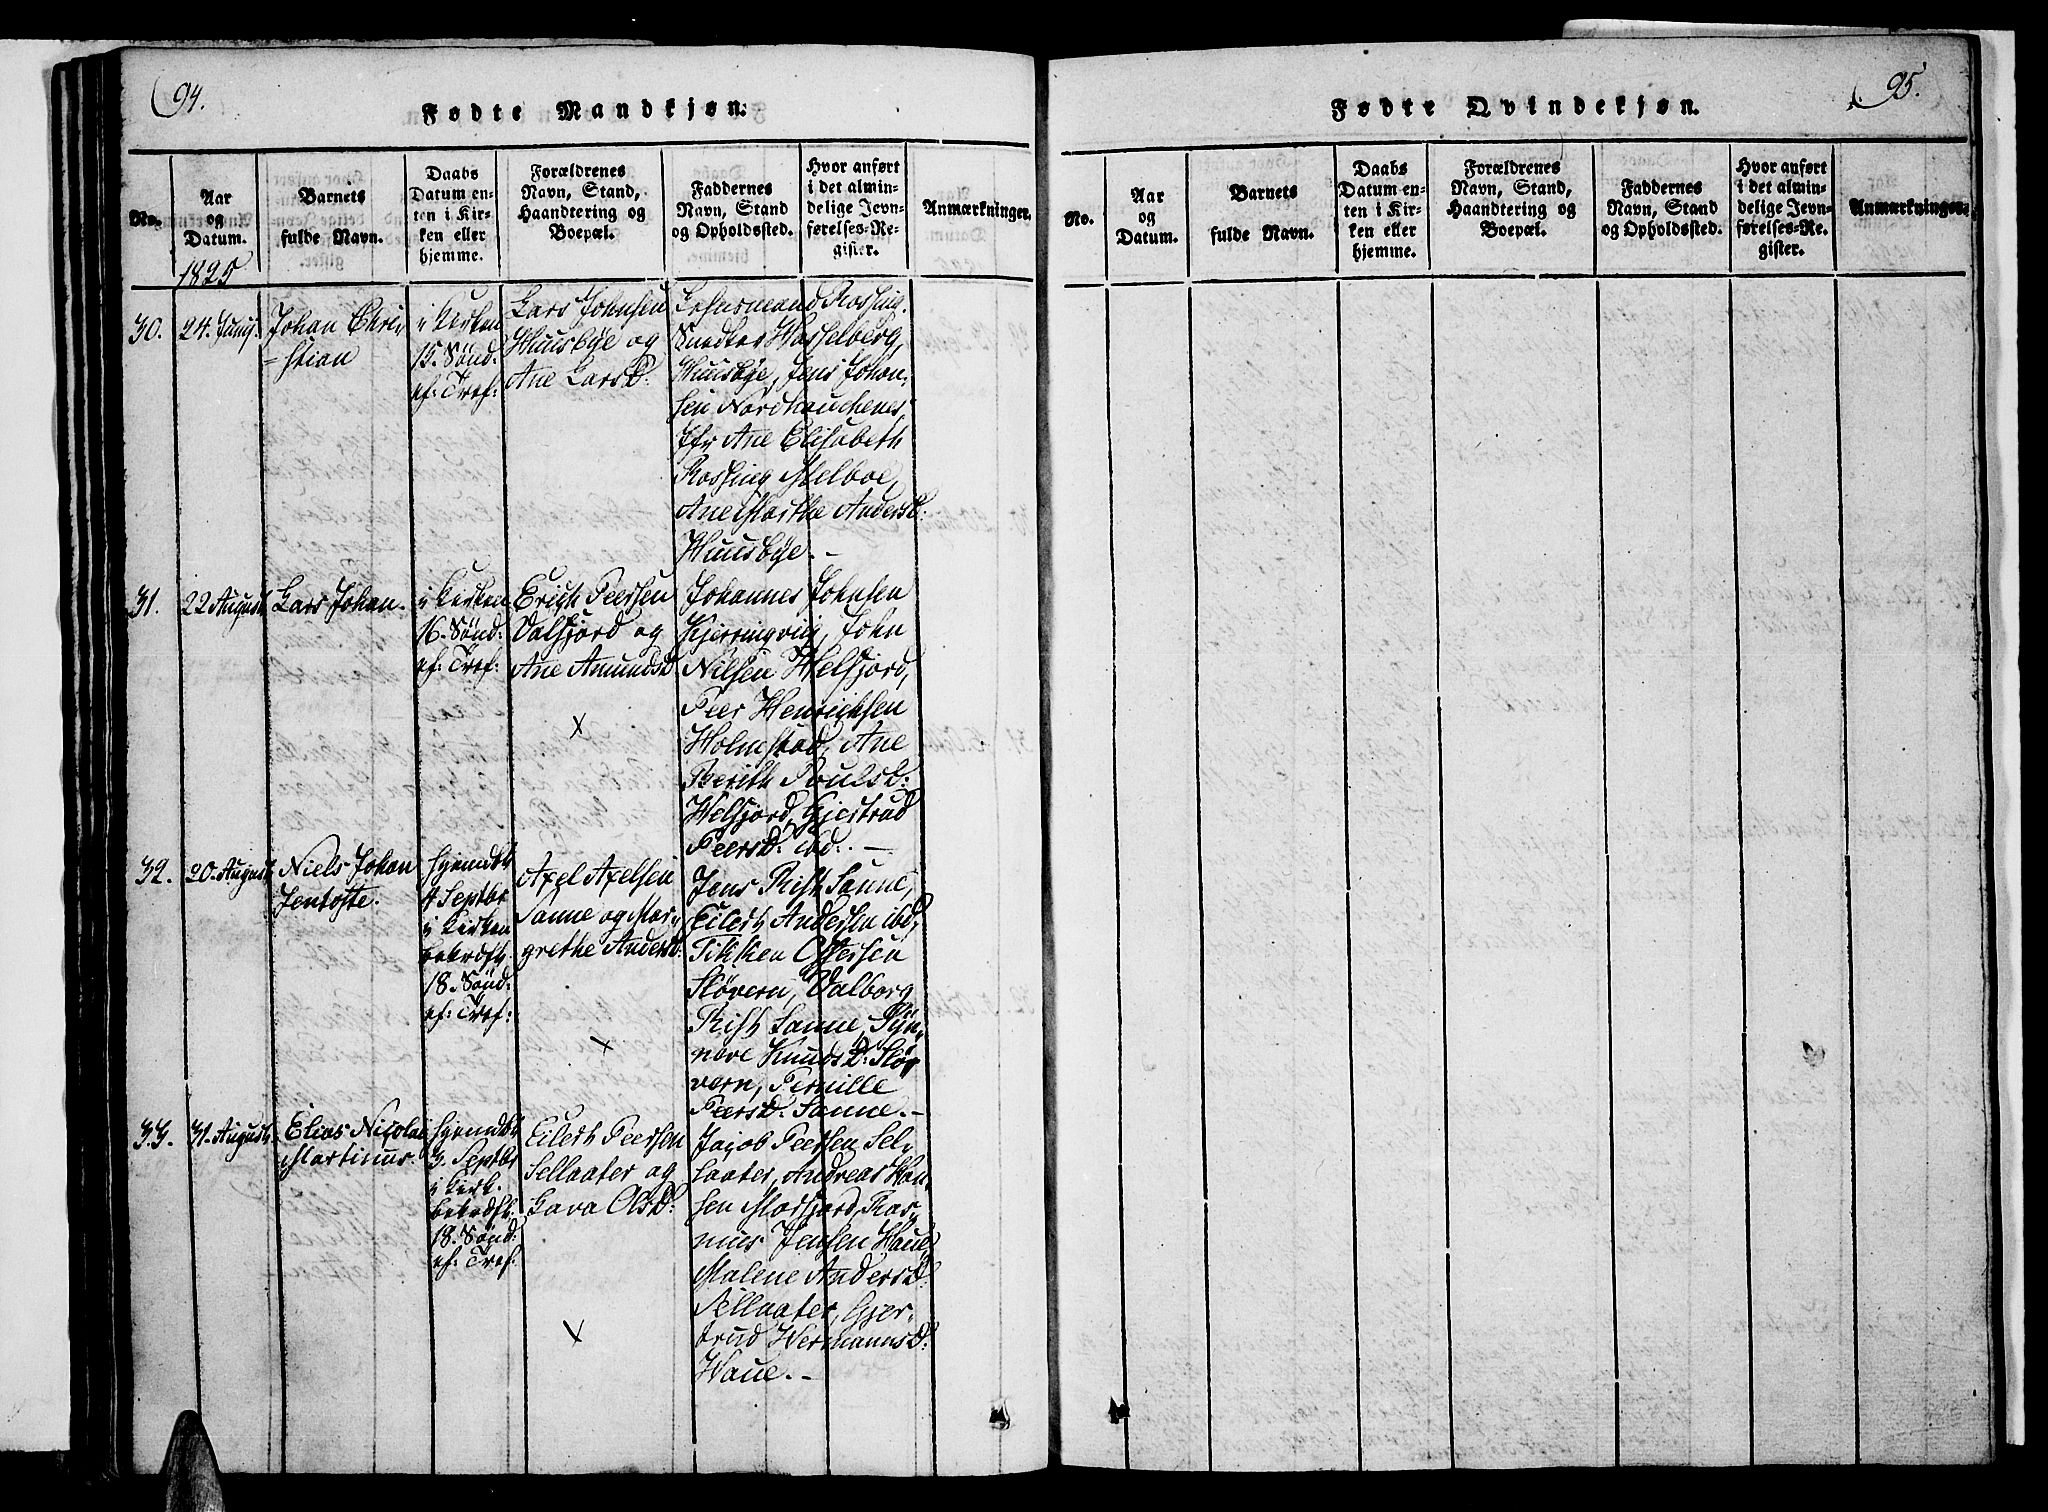 94.
Fødte Mandkjøn.
No.
Aar
og
Datum.
1825
Barnets
fulde Navn.
Daabs
Datum en-
ten i Kir-
ken eller
hjemme.
Forældrenes
Navn, Stand,
Haandtering og
Boepæl.
Faddernes
Navn, Stand
og Opholdssted.
Hvor anført
i det almin-
delige Jevn-
førelses-Re-
gister.
Anmærkninger.
30.
24. Junij.
Johan Chri-
-stian
i Kirken
15. Sønd:
ef: Tref:
Lars Johnsen
Huusbye og
Ane Larsd:
Lehnsmand Rossing.
Snedker Hasselberg,
Huusbye, Jens Johan-
sen
Jfr Ane Elisabeth
Rossing Melboe,
Ane Marthe Andersd:
Huusbye. -
31.
22 August
Lars Johan.
i Kirken
16. Sønd:
ef: Tref:
Erich Peersen
Valfjord og
Ane Amundsd
x
Johannes Johnsen
Kjerringviig, John
Nilsen Welfjord,
Peer Henrichsen
Holmstad, Ane
Berith Poulsd:
Welfjord, Gjertrud
Peersd: ibd. -
32.
20. August
Niels Johan
Jentofte.
hjemdt
4 Septbr
i Kirken
bekræft.
18. Sønd:
ef: Tref:
Axel Axelsen
Sanne og Mar-
grethe Andersd:
x
Jens Rist Sanne,
Eilert Andersen ibd,
Tikken Offersen
Sløvern, Valborg
Rist Sanne, Syn-
neve Knudsd: Slø-
vern, Pernille
Peersd: Sanne. -
33.
31. August
Elias Nicolai
Martinus.
hjemdt
3. Septbr
i Kirk.
bekræft.
18. Sønd:
ef: Tref:
Eilert Peersen
Sellaater og
Lava Olsd:
x
Jacob Peersen Sel-
laater, Andreas Han-
sen Morfjord, Ras-
mus Jensen Haue,
Malene Andersd:
Sellaater, Gjer-
trud Hermannsd:
Haue. -
95.
Fødte Qvindekjøn.
No.
Aar
og
Datum.
Barnets
fulde Navn.
Daabs
Datum en-
ten i Kir-
ken eller
hjemme.
Forældrenes
Navn, Stand,
Haandtering og
Boepæl.
Faddernes
Navn, Stand
og Opholdssted.
Hvor anført
i det almin-
delige Jevn-
førelses-Re-
gister.
Anmærkninger.